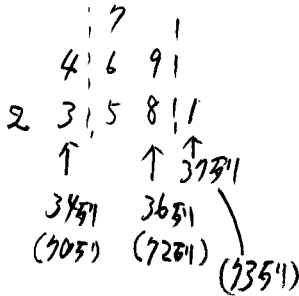 7
4 6 9
2 3 5 8 1
37列
34列 36列
(70列) (72列)
(73列)